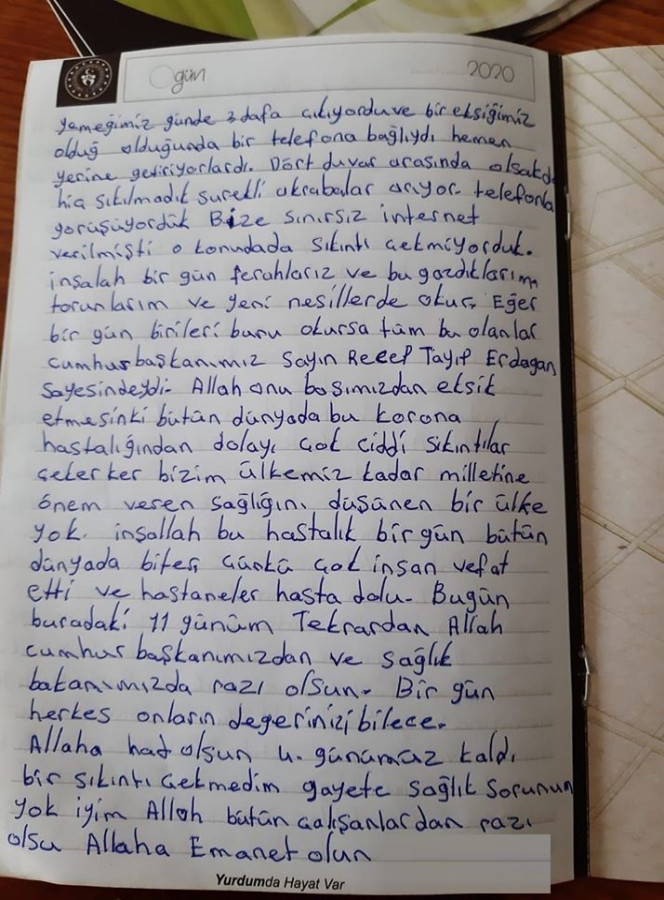 gün
2020
yemeğimiz günde 3 dafa çıkıyordu ve bir eksiğimiz
olduğ olduğunda bir telefona bağlıydı hemen
yerine getiriyorlardı. Dört duvar arasında olsakda
hiç sıkılmadık surekli akrabalar arıyor telefonla
görüşüyorduk Bize sınırsız internet
verilmişti o konudada sıkıntı çekmiyorduk.
insalah bir gün ferahlarız ve bu yazdıklarımı
torunlarım ve yeni nesillerde okur, Eğer
bir gün birileri bunu okursa tüm bu olanlar
cumhurbaşkanımız Sayın Recep Tayip Erdagan
sayesindeydi- Allah onu başımızdan eksik
etmesinki bütün dünyada bu korona
hastalığından dolayı çok ciddi sıkıntılar
çekerker bizim ülkemiz kadar milletine
önem veren sağlığını düşünen bir ülke
yok. inşallah bu hastalık bir gün bütün
dünyada biter çünkü çok insan vefat
etti ve hastaneler hasta dolu- Bugün
buradaki 11 günüm Tekrardan Allah
cumhurbaşkanımızdan ve sağlık
bakanımızda razı olsun- Bir gün
herkes onların degerinizi bilece.
Allaha hat olsun 4. günümüz kaldı
bir sıkıntı çekmedim gayete sağlık sorunum
yok iyim Allah bütün çalışanlardan razı
olsu Allaha Emanet olun
Yurdumda Hayat Var